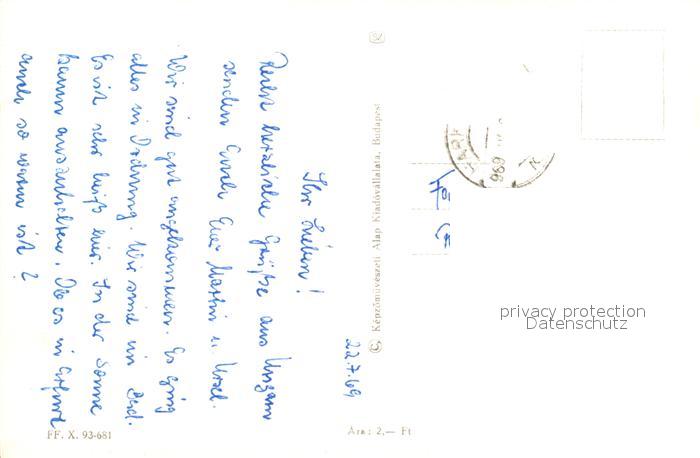 22.7.69
Ihr Lieben!
Recht herzliche Grüße aus Ungarn
senden Euch Eure Martin u. Ursel.
Wir sind gut angekommen. Es ging
alles in Ordnung. Wir sind im Bad.
Es ist sehr heiß hier. In der Sonne
kaum auszuhalten. Ob es in Erfurt
auch so warm ist?
Képzőművészeti Alap Kiadóvállalata, Budapest
FF. X. 93-681
Ára: 2,— Ft
969
privacy protection
Datenschutz